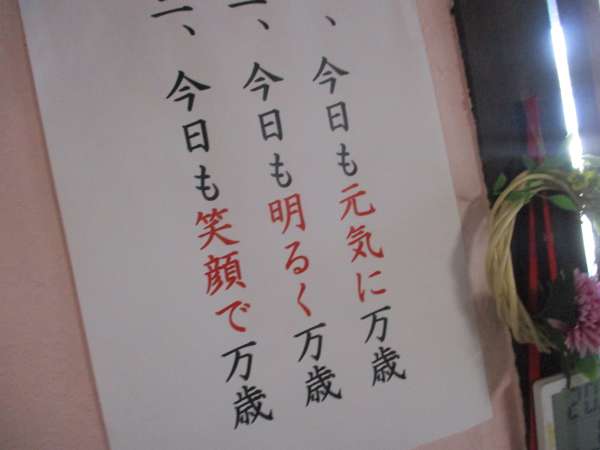 、今日も元気に万歳
、今日も明るく万歳
、今日も笑顔で万歳
20